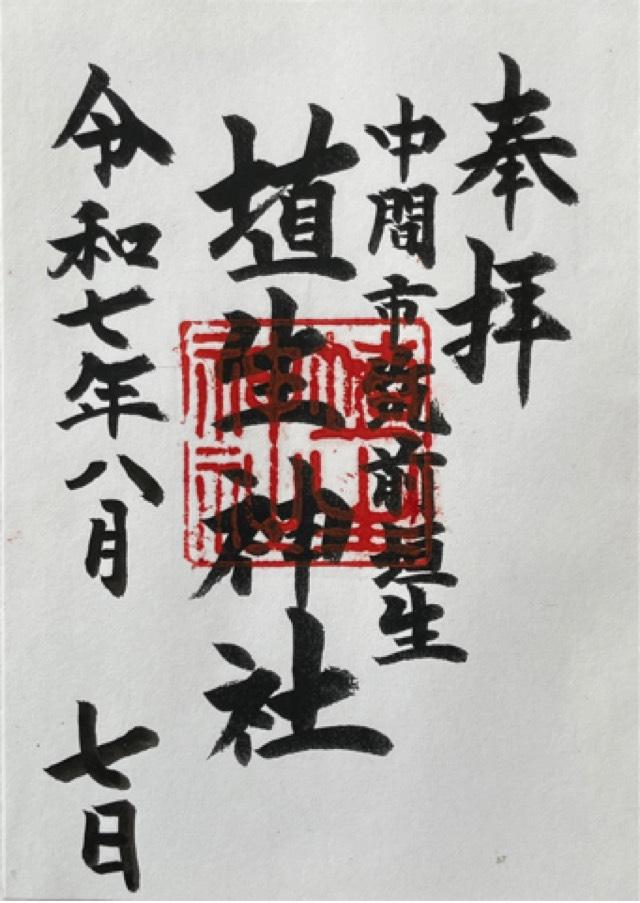 奉拝
中間市筑前垣生
埴生神社
令和七年八月 七日